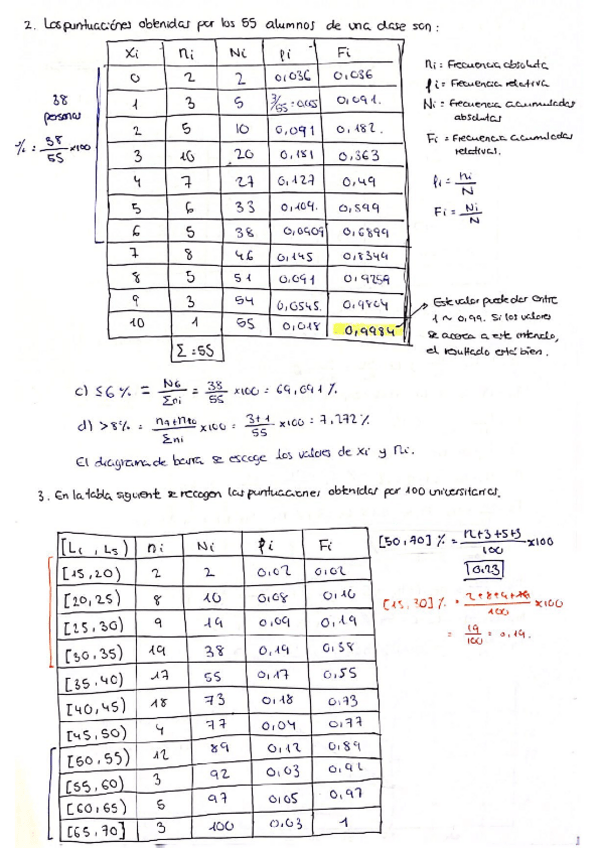 2. Las puntuaciónes obtenidas por los 55 alumnos de una clase son:
Xi ni Ni pi Fi
0 2 2 0,036 0,036
1 3 5 3/55 = 0,05 0,091.
2 5 10 0,091 0,182.
3 10 20 0,181 0,363
4 7 27 0,127 0,49
5 6 33 0,109. 0,599
6 5 38 0,0909 0,6899
7 8 46 0,145 0,8349
8 5 51 0,091 0,9259
9 3 54 0,0545. 0,9804
10 1 55 0,018 0,9984
Σ = 55
38
personas
% = 38/55 x100
ni: Frecuencia absoluta
pi = Frecuencia relativa
Ni: Frecuencia acumuladas
absolutas
Fi = Frecuencia acumuladas
relativas.
pi = ni/N
Fi = Ni/N
Este valor puede dar entre
1 ~ 0,99. Si los valores
se acerca a este intervalo,
el resultado está bien.
c) ≤6 % = N6/Σni = 38/55 x100 = 69,091 %
d) >8% = n9+n10/Σni x100 = 3+1/55 x100 = 7,272 %
El diagrama de barra se escoge los valores de xi y ni.
3. En la tabla siguiente se recogen las puntuaciones obtenidas por 100 universitarios.
[Li , Ls) ni Ni pi Fi
[15,20) 2 2 0,02 0,02
[20,25) 8 10 0,08 0,10
[25,30) 9 19 0,09 0,19
[30,35) 19 38 0,19 0,38
[35,40) 17 55 0,17 0,55
[40,45) 18 73 0,18 0,73
[45,50) 4 77 0,04 0,77
[50,55) 12 89 0,12 0,89
[55,60) 3 92 0,03 0,92
[60,65) 5 97 0,05 0,97
[65,70] 3 100 0,03 1
[50,70] % = 12+3+5+3/100 x100
0.23
[15,30] % = 2+8+9/100 x100
= 19/100 = 0,19.